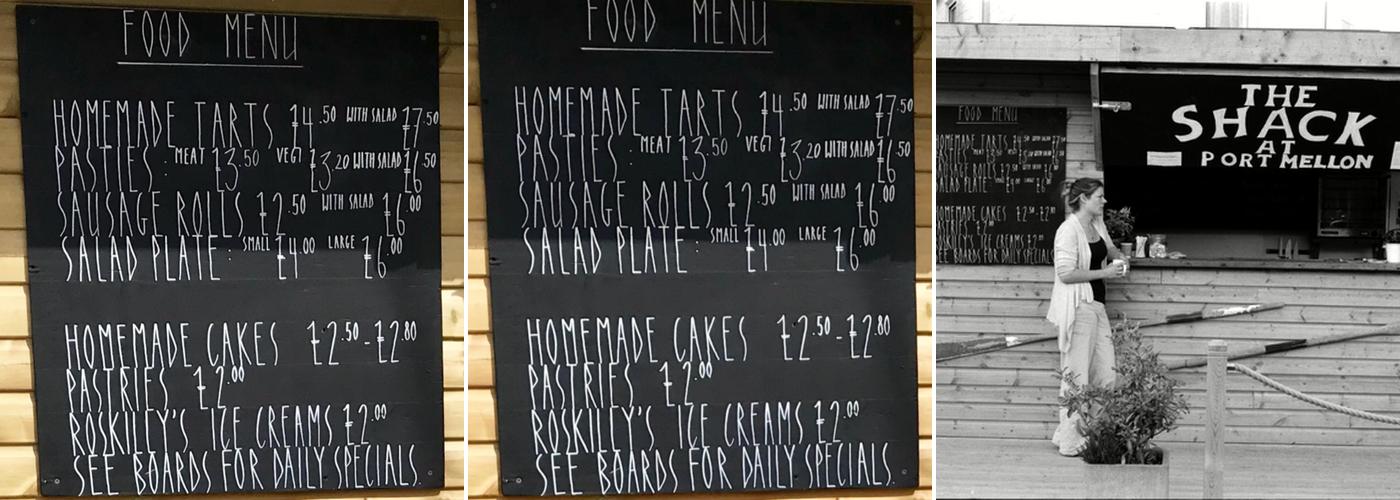 FOOD MENU
HOMEMADE TARTS £4.50 WITH SALAD £7.50
PASTIES : MEAT £3.50 VEGI £3.20 WITH SALAD £6.50
SAUSAGE ROLLS £2.50 WITH SALAD £6.00
SALAD PLATE : SMALL £4.00 LARGE £6.00
HOMEMADE CAKES £2.50-£2.80
PASTRIES £2.00
ROSKILLY'S ICE CREAMS £2.00
SEE BOARDS FOR DAILY SPECIALS.
FOOD MENU
HOMEMADE TARTS £4.50 WITH SALAD £7.50
PASTIES : MEAT £3.50 VEGI £3.20 WITH SALAD £6.50
SAUSAGE ROLLS £2.50 WITH SALAD £6.00
SALAD PLATE : SMALL £4.00 LARGE £6.00
HOMEMADE CAKES £2.50-£2.80
PASTRIES £2.00
ROSKILLY'S ICE CREAMS £2.00
SEE BOARDS FOR DAILY SPECIALS.
FOOD MENU
HOMEMADE TARTS
PASTIES
SAUSAGE ROLLS £2.50
SALAD PLATE
HOMEMADE CAKES £2.50-£2.80
PASTRIES £2.00
ROSKILLY'S ICE CREAMS £2.00
SEE BOARDS FOR DAILY SPECIALS
THE
SHACK
AT
PORT MELLON